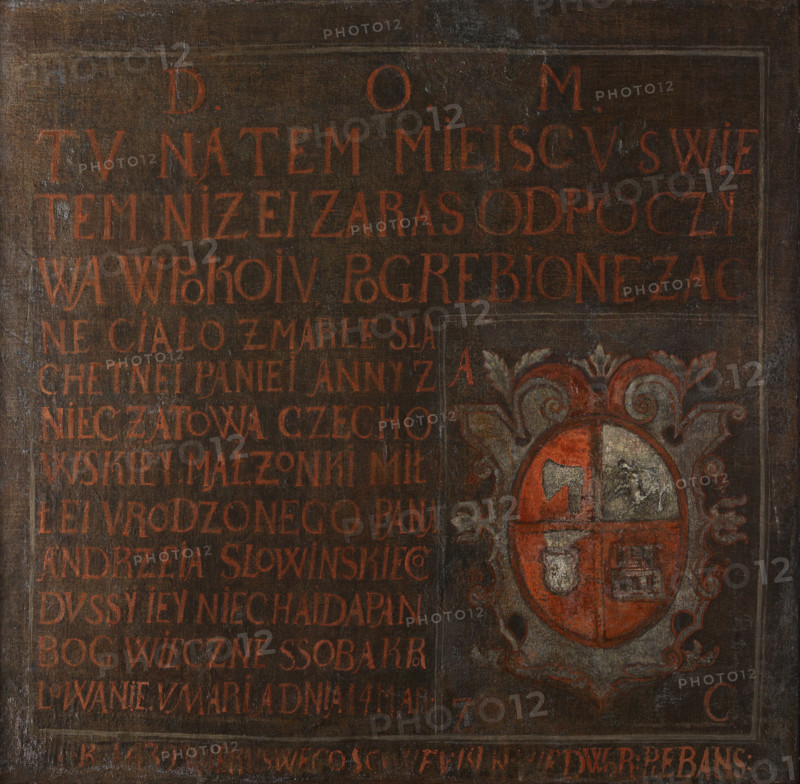 D. O. M.
TV NA TEM MIEISCV SWIĘ
TEM NIZEI ZARAS ODPOCZY
WA W POKOIV POGREBIONE ZAC
NE CIAŁO ZMARŁE SLA
CHETNEI PANIEI ANNY Z
NIECZATOWA CZECHO
WSKIEY MAŁZONKI MIŁ
ŁEI VRODZONEGO PAN
ANDRZEIA SŁOWINSKIEGO
DVSSY IEY NIECHAI DA PAN
BOG WIECZNE S SOBA KRO
LOWANIE VMARŁA DNIA 14 MAR
A
C